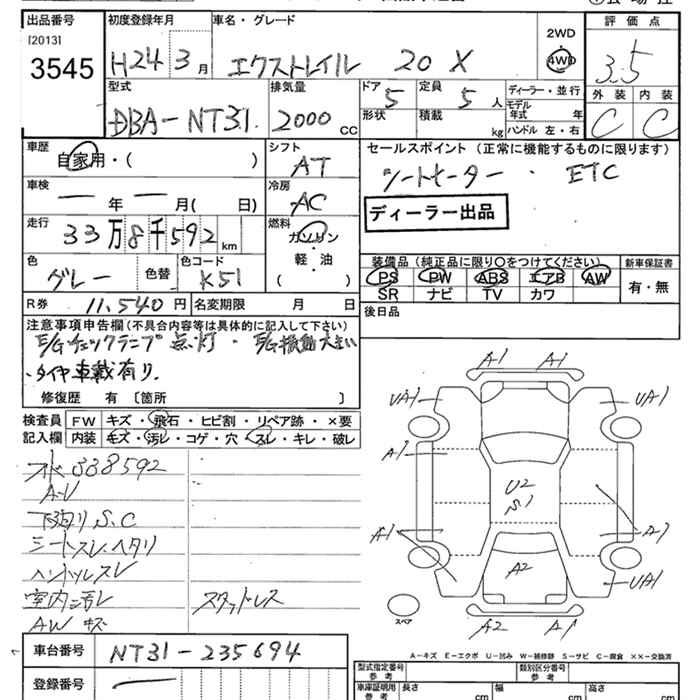 出品番号 初度登録年月 車名・グレード 評価点
[2013]
3545
H24 3月 エクストレイル 20 X 2WD 4WD 3.5
型式 排気量 ドア 定員 ディーラー・並行 外装 内装
DBA-NT31 2000 CC 5 5人 モデル年式 年 C C
形状 積載 kg ハンドル 左・右
車歴 シフト セールスポイント (正常に機能するものに限ります)
自家用・( ) AT シートヒーター ・ ETC
車検 冷房
ー 年 ー 月( 日) AC ディーラー出品
走行 燃料
33万8千592km ガソリン
軽・油
( )
装備品(純正品に限り○をつけてください) 新車保証書
色 色替 色コード PS PW ABS エアB AW 有・無
グレー K51 SR ナビ TV カワ
R券 11,540円 名変期限 月 日 後日品
注意事項申告欄(不具合内容等は具体的に記入して下さい)
E/Gチェックランプ点灯・E/G振動大きい
・タイヤ車載有り.
修復歴 有 〔箇所 〕
検査員 FW キズ・飛石・ヒビ割・リペア跡・×要
記入欄 内装 キズ・汚レ・コゲ・穴・スレ・キレ・破レ
338592
A-V
下廻りS.C
シートスレヘタリ
ハンドルスレ
室内汚レ スタッドレス
AWキズ
A1 A1
UA1 UA1
A1
U2
S1
A1 A1
A2 UA1
スペア
A2 A1
A-キズ E-エクボ U-凹み W-補修跡 S-サビ C-腐食 ××-交換済
車台番号 NT31-235694
登録番号 ー
型式指定番号 参考 類別区分番号 参考
車庫証明用 参考 長さ cm 幅 cm 高さ cm